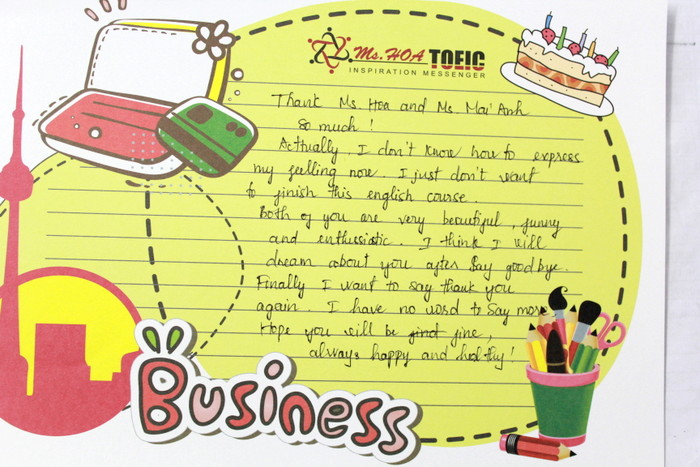 Ms. HOA TOEIC
INSPIRATION MESSENGER
Thank Ms Hoa and Ms. Mai Anh
so much !
Actually, I don't know how to express
my feeling now. I just don't want
to finish this english course.
Both of you are very beautiful, funny
and enthusiastic. I think I will
dream about you after Say goodbye.
Finally I want to say thank you
again. I have no word to Say more
Hope you will be fine,
always happy and healthy!
Business